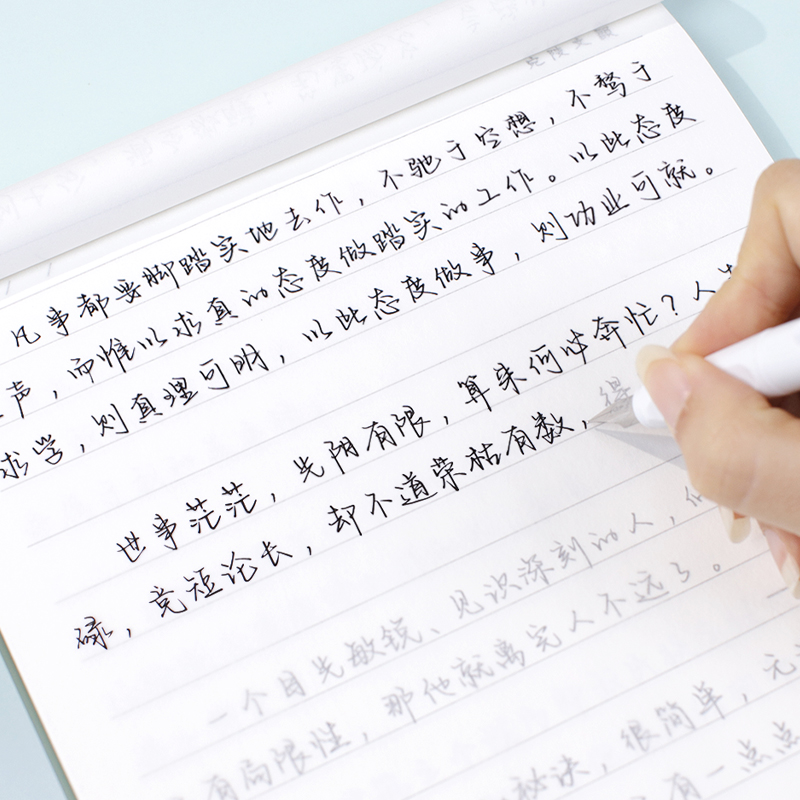 凡事都要脚踏实地去作，不驰于空想，不骛于
声，而惟以求真的态度做踏实的工作。以此态度
求学，则真理可明，以此态度做事，则功业可就。
世事茫茫，光阴有限，算来何必奔忙？人
碌，竞短论长，却不道荣枯有数，得
一个目光敏锐、见识深刻的人，
有局限性，那他就离完人不远了。
秘诀，很简单，无
有一点点